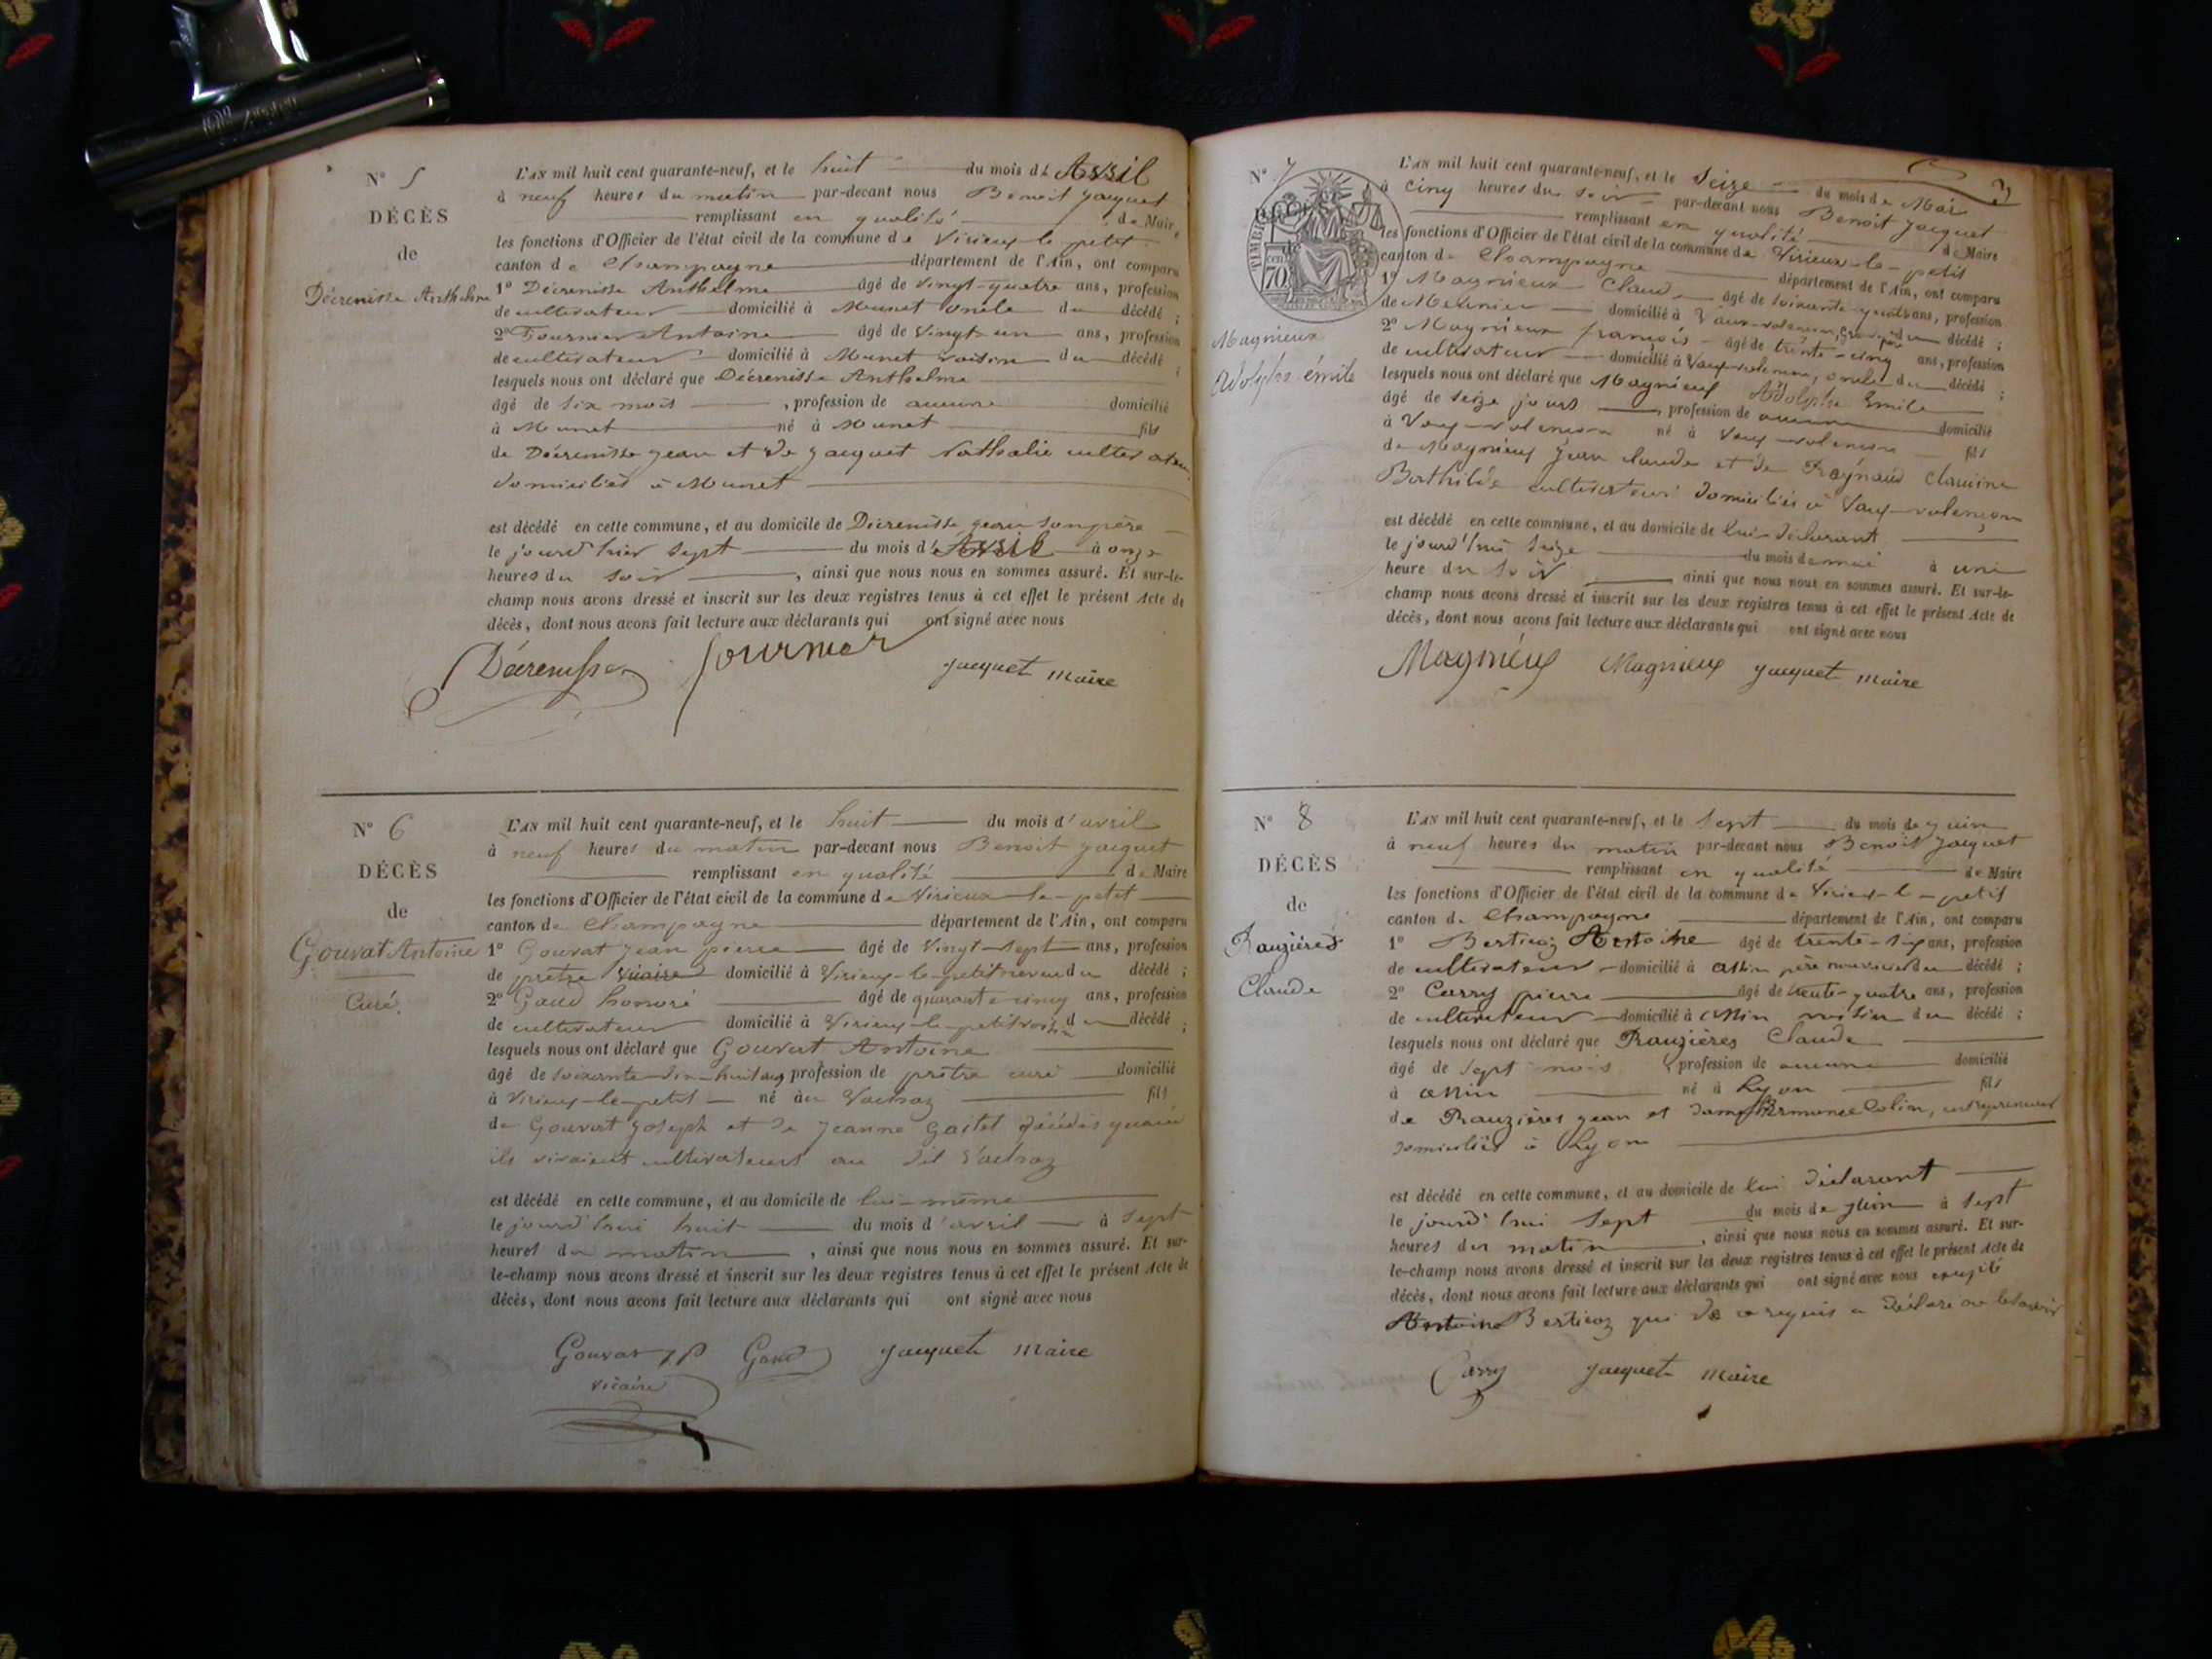 N° 5
DÉCÈS
de
Décrenisse Anthelme
L'AN mil huit cent quarante-neuf, et le huit du mois d'Avril
à neuf heures du matin par-devant nous Benoit Jacquet
remplissant en qualité de Maire
les fonctions d'Officier de l'état civil de la commune de Virieux le petit
canton de Champagne département de l'Ain, ont comparu
1° Décrenisse Anthelme âgé de vingt-quatre ans, profession
de cultivateur domicilié à Munet oncle du décédé ;
2° Fournier Antoine âgé de vingt-un ans, profession
de cultivateur domicilié à Munet voisin du décédé ;
lesquels nous ont déclaré que Décrenisse Anthelme
âgé de six mois , profession de aucune domicilié
à Munet né à Munet fils
de Décrenisse Jean et de Jacquet Nathalie cultivateurs
domiciliés à Munet
est décédé en cette commune, et au domicile de Décrenisse Jean son père
le jourd'hier sept du mois d'Avril à onze
heures du soir , ainsi que nous nous en sommes assuré. Et sur-le-
champ nous avons dressé et inscrit sur les deux registres tenus à cet effet le présent Acte de
décès, dont nous avons fait lecture aux déclarants qui ont signé avec nous
Décrenisse fournier Jacquet maire
N° 6
DÉCÈS
de
Gouvat Antoine
Curé.
L'AN mil huit cent quarante-neuf, et le huit du mois d'avril
à neuf heures du matin par-devant nous Benoit Jacquet
remplissant en qualité de Maire
les fonctions d'Officier de l'état civil de la commune de Virieux-le-petit
canton de Champagne département de l'Ain, ont comparu
1° Gouvat Jean pierre âgé de vingt-sept ans, profession
de prêtre vicaire domicilié à Virieux-le-petit neveu du décédé ;
2° Gaud honoré âgé de quarante cinq ans, profession
de cultivateur domicilié à Virieux-le-petit voisin du décédé ;
lesquels nous ont déclaré que Gouvat Antoine
âgé de soixante-dix-huit ans profession de prêtre curé domicilié
à Virieux-le-petit né au fils
de Gouvat Joseph et de Jeanne décédés quand
ils vivaient cultivateurs au dit
est décédé en cette commune, et au domicile de lui-même
le jourd'hui huit du mois d'avril à sept
heures du matin , ainsi que nous nous en sommes assuré. Et sur-
le-champ nous avons dressé et inscrit sur les deux registres tenus à cet effet le présent Acte de
décès, dont nous avons fait lecture aux déclarants qui ont signé avec nous
Gouvat J P Gaud Jacquet maire
vicaire
N° 7
TIMBRE
70
Magnieux
Adolphe émile
L'AN mil huit cent quarante-neuf, et le seize du mois de Mai
à cinq heures du soir par-devant nous Benoit Jacquet
remplissant en qualité de Maire
les fonctions d'Officier de l'état civil de la commune de Virieux-le-petit
canton de Champagne département de l'Ain, ont comparu
1° Magnieux Claude âgé de soixante-quatre ans, profession
de Meunier domicilié à Vaux-valençon, grand père du décédé ;
2° Magnieux françois âgé de trente-cinq ans, profession
de cultivateur domicilié à Vaux-valençon, oncle du décédé ;
lesquels nous ont déclaré que Magnieux Adolphe Emile
âgé de seize jours , profession de aucune domicilié
à Vaux-valençon né à Vaux-valençon fils
de Magnieux Jean claude et de Raynaud Claudine
Bathilde cultivateurs domiciliés à Vaux-valençon
est décédé en cette commune, et au domicile de lui-déclarant
le jourd'hui seize du mois de mai à une
heure du soir , ainsi que nous nous en sommes assuré. Et sur-le-
champ nous avons dressé et inscrit sur les deux registres tenus à cet effet le présent Acte de
décès, dont nous avons fait lecture aux déclarants qui ont signé avec nous
Magnieux Magnieux Jacquet maire
N° 8
DÉCÈS
de
Rauzières
Claude
L'AN mil huit cent quarante-neuf, et le sept du mois de juin
à neuf heures du matin par-devant nous Benoit Jacquet
remplissant en qualité de Maire
les fonctions d'Officier de l'état civil de la commune de Virieux-le-petit
canton de Champagne département de l'Ain, ont comparu
1° Berticoz Antoine âgé de trente-six ans, profession
de cultivateur domicilié à Assin père nourricier du décédé ;
2° Carry pierre âgé de trente-quatre ans, profession
de cultivateur domicilié à Assin voisin du décédé ;
lesquels nous ont déclaré que Rauzières Claude
âgé de sept mois , profession de aucune domicilié
à Assin né à Lyon fils
de Rauzières Jean et dame Hermance Colin, entrepreneurs
domiciliés à Lyon
est décédé en cette commune, et au domicile de lui déclarant
le jourd'hui sept du mois de juin à sept
heures du matin , ainsi que nous nous en sommes assuré. Et sur-
le-champ nous avons dressé et inscrit sur les deux registres tenus à cet effet le présent Acte de
décès, dont nous avons fait lecture aux déclarants qui ont signé avec nous excepté
Antoine Berticoz qui de ce requis a déclaré ne le savoir
Carry Jacquet maire